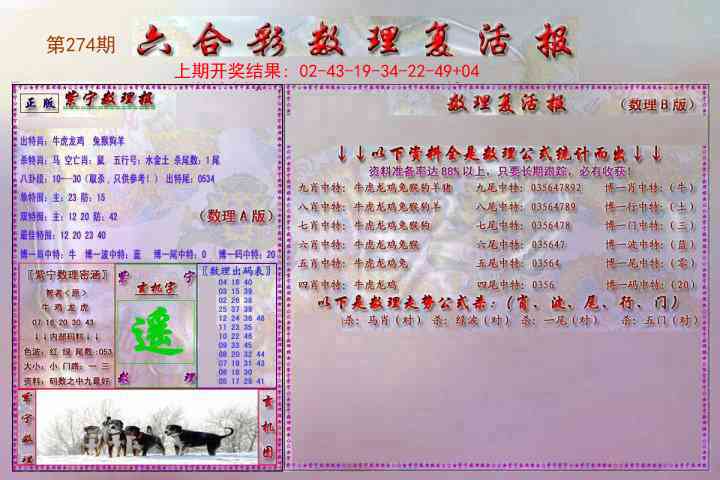 第274期 六合彩数理复活报
上期开奖结果：02-43-19-34-22-49+04
正版 紫宁数理报
出特肖：牛虎龙鸡 兔猴狗羊
杀特肖：马 空亡肖：鼠 五行号：水金土 杀尾数：1尾
八卦经：10--30（取杀，只供参考！） 出特尾：0534
单特围：主：23 防：15
双特围：主：12 20 防：42
最佳特围：12 20 23 40
（数理A版）
博一肖中特：牛 博一波中特：蓝 博一尾中特：0 博一码中特：20
〖紫宁数理密涵〗
智者＜原＞
牛 鸡 龙 虎
07 18 20 30 43
↓↓内部码料↓↓
色波：红 绿 尾数：053
大小：小 门路：一 三
资料：码数之中九最好
紫 宁
玄机字
遥
数 理
〖数理出码表〗
04 18 40
03 15 39
02 26 38
25 37 39
12 24 36 48
11 23 35
10 22 46
09 33 45
08 20 32 44
07 19 31 43
06 18 30
05 17 29 41
紫宁数理
玄机图
数理复活报 （数理B版）
↓↓以下资料全是数理公式统计而出↓↓
资料准备率达88%以上，只要长期跟踪，必有收获！
九肖中特：牛虎龙鸡兔猴狗羊猪 九尾中特：035647892 博一肖中特：（牛）
八肖中特：牛虎龙鸡兔猴狗羊 八尾中特：03564789 博一行中特：（土）
七肖中特：牛虎龙鸡兔猴狗 七尾中特：0356478 博一门中特：（三）
六肖中特：牛虎龙鸡兔猴 六尾中特：035647 博一波中特：（蓝）
五肖中特：牛虎龙鸡兔 五尾中特：03564 博一尾中特：（零）
四肖中特：牛虎龙鸡 四尾中特：0356 博一码中特：（20）
以下是数理走势公式杀：（肖、波、尾、行、门）
杀：马肖（对） 杀：绿波（对） 杀：一尾（对） 杀：五门（对）